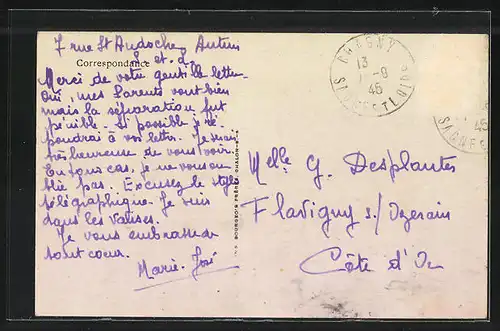 7 rue St Andoche, Autun
S. et. L.
Correspondance
Merci de votre gentille lettre.
Oui, mes Parents vont bien
mais la séparation fut
pénible. Si possible je ré-
pondrai à vos lettres. Je serais
très heureuse de vous voir.
En tous cas, je ne vous ou-
blie pas. Excusez le style
télégraphique. Je suis
dans les valises.
Je vous embrasse de
tout coeur.
Marie-José
Melle G. Desplantes
Flavigny s/Ozerain
Côte d'Or
CHAGNY
13
-9
45
45